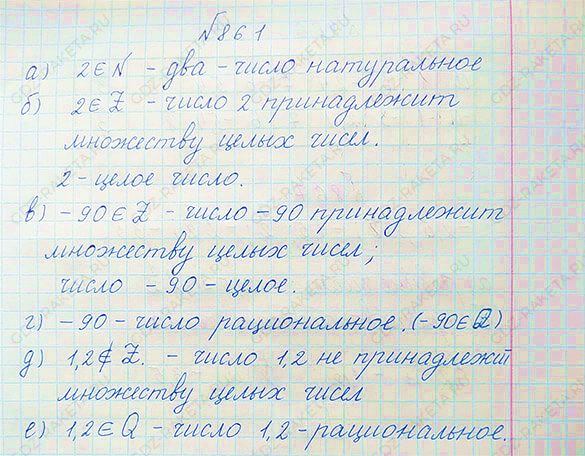 №861
а) 2∈N - два - число натуральное
б) 2∈Z - число 2 принадлежит
множеству целых чисел.
2 - целое число.
в) -90∈Z - число -90 принадлежит
множеству целых чисел;
число -90 - целое.
г) -90 - число рациональное. (-90∈Q)
д) 1,2∉Z. - число 1,2 не принадлежит
множеству целых чисел
е) 1,2∈Q - число 1,2 - рациональное.
GDZ-RAKETA.RU